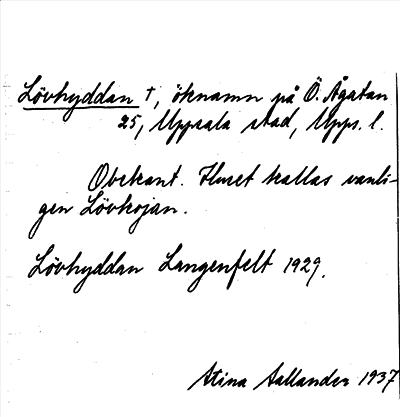 Lövhyddan †, öknamn på Ö. Ågatan
25, Uppsala stad, Upps. l.
Obekant. Huset kallas vanli-
gen Lövkojan.
Lövhyddan Langenfelt 1929.
Stina Sallander 1937